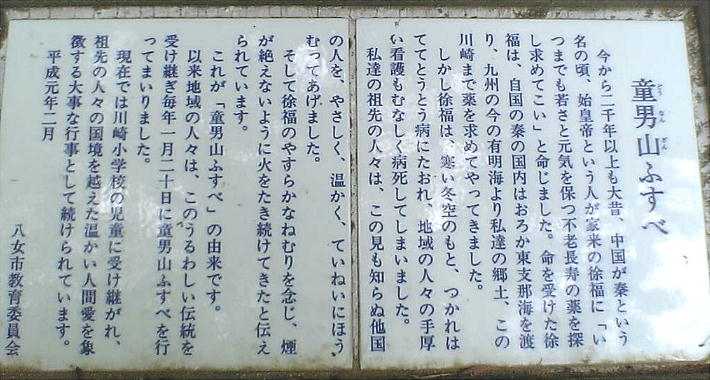 童男山ふすべ
どう なん ざん
今から二千年以上も大昔、中国が秦という
名の頃、始皇帝という人が家来の徐福に「い
つまでも若さと元気を保つ不老長寿の薬を探
し求めてこい」と命じました。命を受けた徐
福は、自国の秦の国内はおろか東支那海を渡
り、九州の今の有明海より私達の郷土、この
川崎まで薬を求めてやってきました。
しかし徐福は、寒い冬空のもと、つかれは
ててとうとう病にたおれ、地域の人々の手厚
い看護もむなしく病死してしまいました。
私達の祖先の人々は、この見も知らぬ他国
の人を、やさしく、温かく、ていねいにほう
むってあげました。
そして徐福のやすらかなねむりを念じ、煙
が絶えないように火をたき続けてきたと伝え
られています。
これが「童男山ふすべ」の由来です。
以来地域の人々は、このうるわしい伝統を
受け継ぎ毎年一月二十日に童男山ふすべを行
ってまいりました。
現在では川崎小学校の児童に受け継がれ、
祖先の人々の国境を越えた温かい人間愛を象
徴する大事な行事として続けられています。
平成元年二月
八女市教育委員会